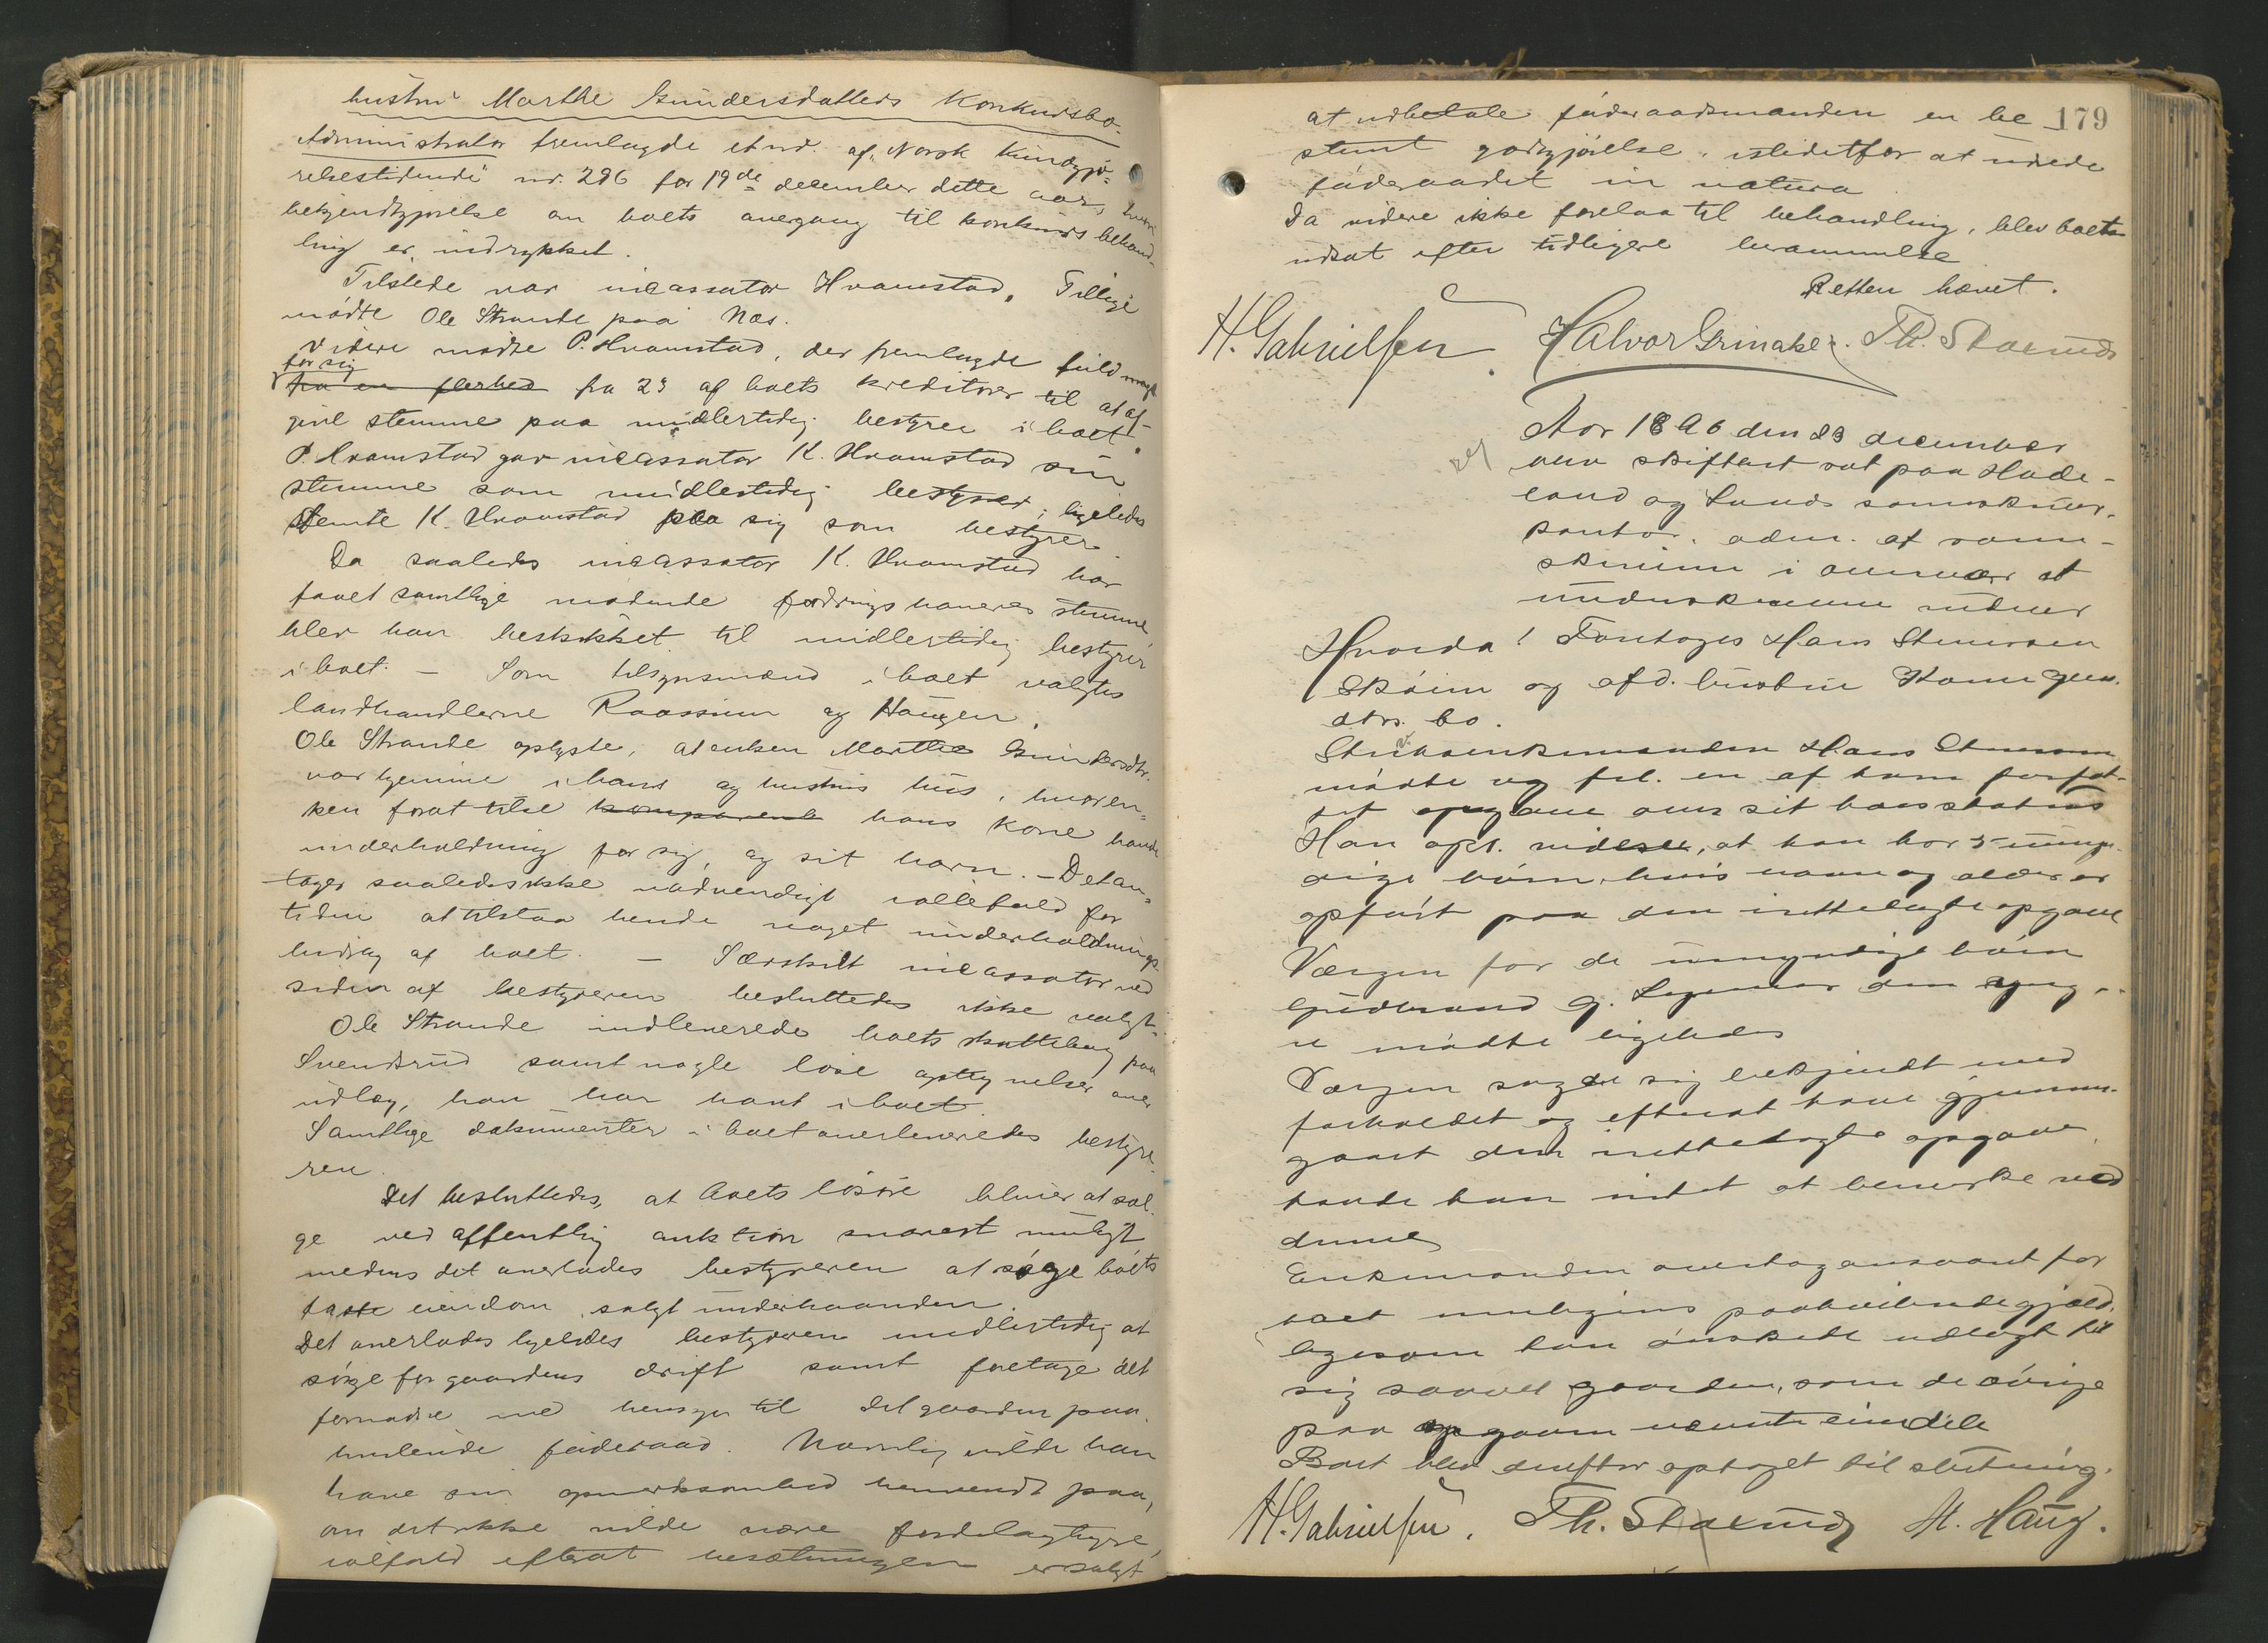 hustru Marthe Gundersdatters Konkursbo.
Administrator fremlagde et nr. af "Norsk Kundgjø-
relsestidende" nr. 296 for 19de december dette aar, hvori
bekjendtgjørelse om boets overgang til konkurs behand-
ling er indrykket.
Tilstede var incassator Hvamstad. Tillige
mødte Ole Strande paa Næs.
Videre mødte P. Hvamstad, der fremlagde fuldmagt
for sig
fra en flerhed fra 23 af boets kreditorer til at af-
give stemme paa midlertidig bestyrer i boet.
P. Hvamstad gav incassator K. Hvamstad sin
stemme som midlertidig bestyrer; ligeledes
stemte K. Hvamstad paa sig som bestyrer.
Da saaledes incassator K. Hvamstad har
faaet samtlige mødende fordringshaveres stemme,
blev han beskikket til midlertidig bestyrer
i boet. – Som tilsynsmænd i boet valgtes
landhandlerne Raassum og Haugen.
Ole Strande oplyste, at enken Marthe Gundersdtr.
var hjemme i hans og hustrus hus, hvor en-
ken forat tilse komparente hans kone havde
underholdning for sig, og sit barn. – Det an-
toges saaledes ikke nødvendigt ialfald for
tiden at tilstaa hende noget underholdnings-
bidrag af boet. – Særskilt incassator ved
siden af bestyreren besluttedes ikke valgt.
Ole Strande indleverede boets skattebog paa
Svendsrud samt nogle løse optegnelser over
udlæg, han har havt i boet.
Samtlige dokumenter i boet overleveredes bestyre-
ren.
Det besluttedes, at boets løsøre bliver at sæl-
ge ved offentlig auktion snarest muligt
medens det overlodes bestyreren at søge boets
faste eiendom solgt underhaanden.
Det overlodes ligeledes bestyreren midlertidig at
sørge for gaardens drift samt foretage det
fornødne med hensyn til det gaarden paa-
hvilende føderaad. Navnlig vilde han
have sin opmerksomhed henvendt paa,
om det ikke vilde være fordelagtigere,
ialfald efterat besætningen er solgt
179
at udbetale føderaadsmanden en be
stemt godtgjørelse, istedetfor at udrede
føderaadet in natura
Da videre ikke forelaa til behandling, blev boet
udsat efter tidligere berammelse
Retten hævet.
H. Gabrielsen. Halvor Grinaker. Th. Skaerud
Aar 1896 den 23 december
blev skifteret sat paa Hade-
land og Lands sorenskriver-
kontor, adm. af soren-
skriveren i overvær af
underskrevne vidner
Hvorda! Foretoges Hans Steensen
Skøien og afd. hustru Karen Gun.
dtrs. bo.
Enkemanden Hans Steensen
mødte og frl. en af ham forfat-
tet opgave over sit boes status
Han opl. videre, at han har 5 umyn-
dige børn, hvis navn og alder er
opført paa den irettelagte opgave
Værgen for de umyndige børn
Gudbrand G. den yng-
re mødte ligeledes
Værgen sagde sig bekjendt med
forholdet og efterat have gjennem-
gaaet den irettelagte opgave
havde han intet at bemerke ved
denne
Enkemanden overtog ansvaret for
boet muligens paahvilende gjæld,
ligesom han ønskede udlagt til
sig saavel gaarden, som de øvrige
paa opgaven nævnte eiendele
Boet blev derefter optaget til slutning.
H. Gabrielsen. Th. Skaerud M. Haug.